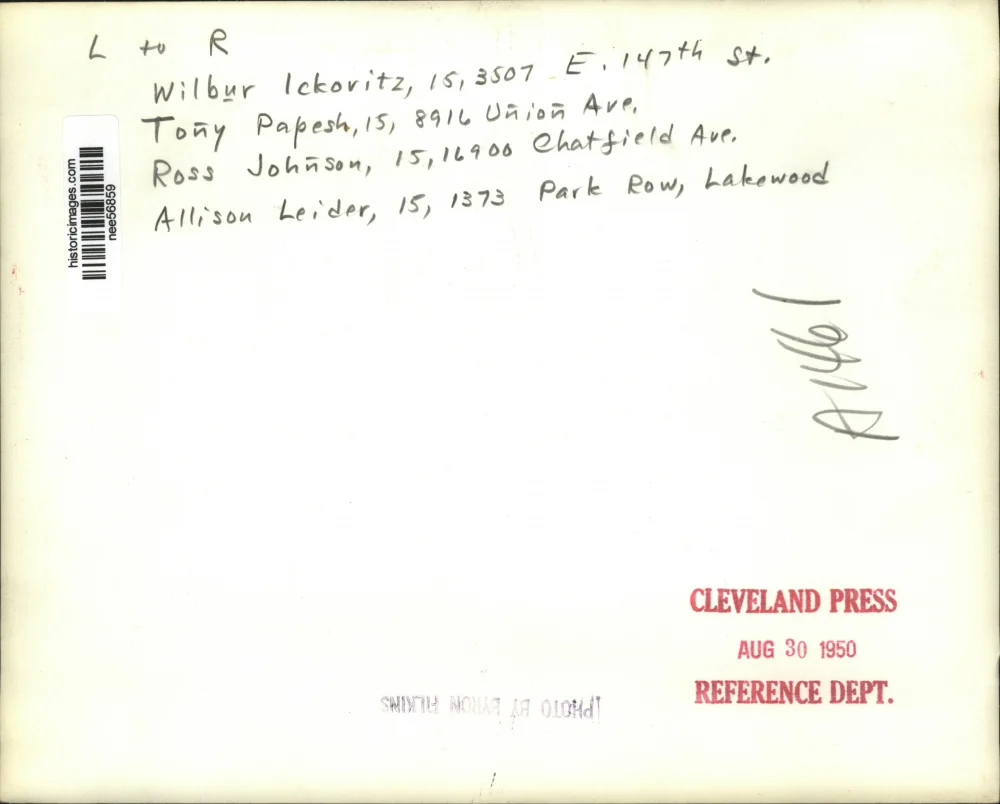 L to R
Wilbur Ickovitz, 15, 3507 E. 147th St.
Tony Papesh, 15, 8916 Union Ave.
Ross Johnson, 15, 16900 Chatfield Ave.
Allison Leider, 15, 1373 Park Row, Lakewood
historicimages.com
nee56859
CLEVELAND PRESS
AUG 30 1950
REFERENCE DEPT.
PHOTO BY BYRON FILKINS